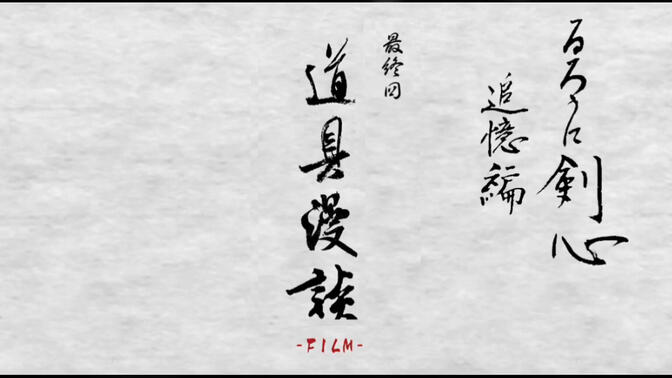 るろうに剣心
追憶編
最終回
道具漫談
-FILM-